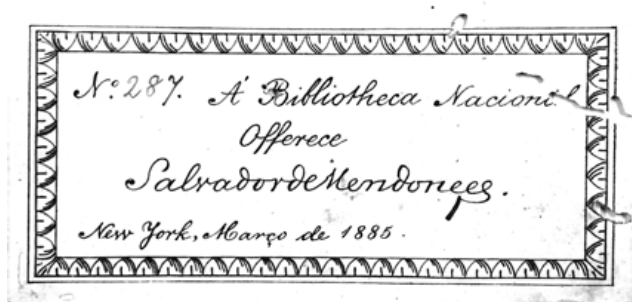 Nº 287. Á Bibliotheca Nacional
Offerece
Salvador de Mendonça.
New York, Março de 1885.